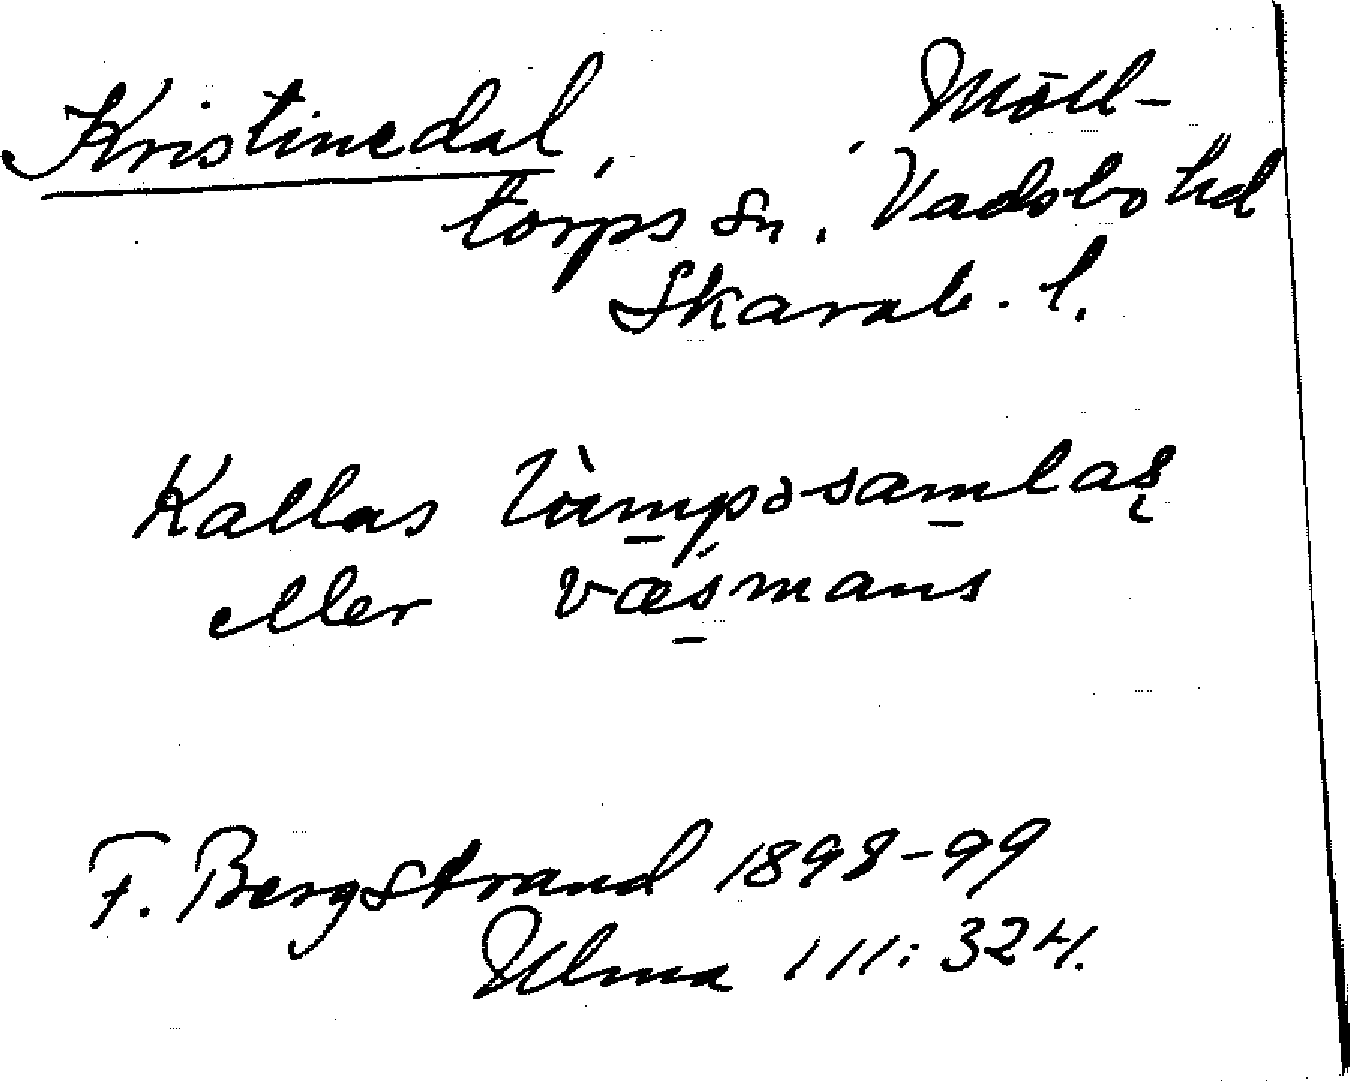 Kristinedal, Möll-
torps sn. Vadsbo hd
Skarab. l.
Kallas
eller væsmans
F. Bergstrand 1898-99
Ulma 111:324.